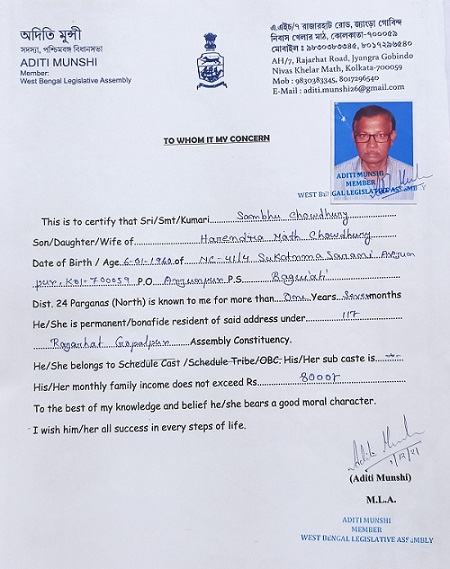 অদিতি মুন্সী
সদস্য, পশ্চিমবঙ্গ বিধানসভা
ADITI MUNSHI
Member:
West Bengal Legislative Assembly
এ.এইচ/৭ রাজারহাট রোড, জ্যাংড়া গোবিন্দ
নিবাস খেলার মাঠ, কোলকাতা-৭০০০৫৯
মোবাইল : ৯৮৩০৩৮৩৩৪৫, ৮০১৭২৯৬৫৪০
AH/7, Rajarhat Road, Jyangra Gobindo
Nivas Khelar Math, Kolkata-700059
Mob : 9830383345, 8017296540
E-Mail : aditi.munshi26@gmail.com
TO WHOM IT MY CONCERN
ADITI MUNSHI
MEMBER
WEST BENGAL LEGISLATIVE ASSEMBLY
This is to certify that Sri/Smt/Kumari Sambhu Chowdhury
Son/Daughter/Wife of Harendra Nath Chowdhury
Date of Birth / Age 6-01-1960 of NC-41/4 Sukanma Sarani Arjun
pur, Kol-700059 P.O. Arjunpur P.S Baguiati
Dist. 24 Parganas (North) is known to me for more than One Years Seven months
He/She is permanent/bonafide resident of said address under 117
Rajarhat Gopalpur Assembly Constituency.
He/She belongs to Schedule Cast /Schedule Tribe/OBC. His/Her sub caste is
His/Her monthly family income does not exceed Rs. 8000/
To the best of my knowledge and belief he/she bears a good moral character.
I wish him/her all success in every steps of life.
Aditi Munshi
1/12/21
(Aditi Munshi)
M.L.A.
ADITI MUNSHI
MEMBER
WEST BENGAL LEGISLATIVE ASSEMBLY